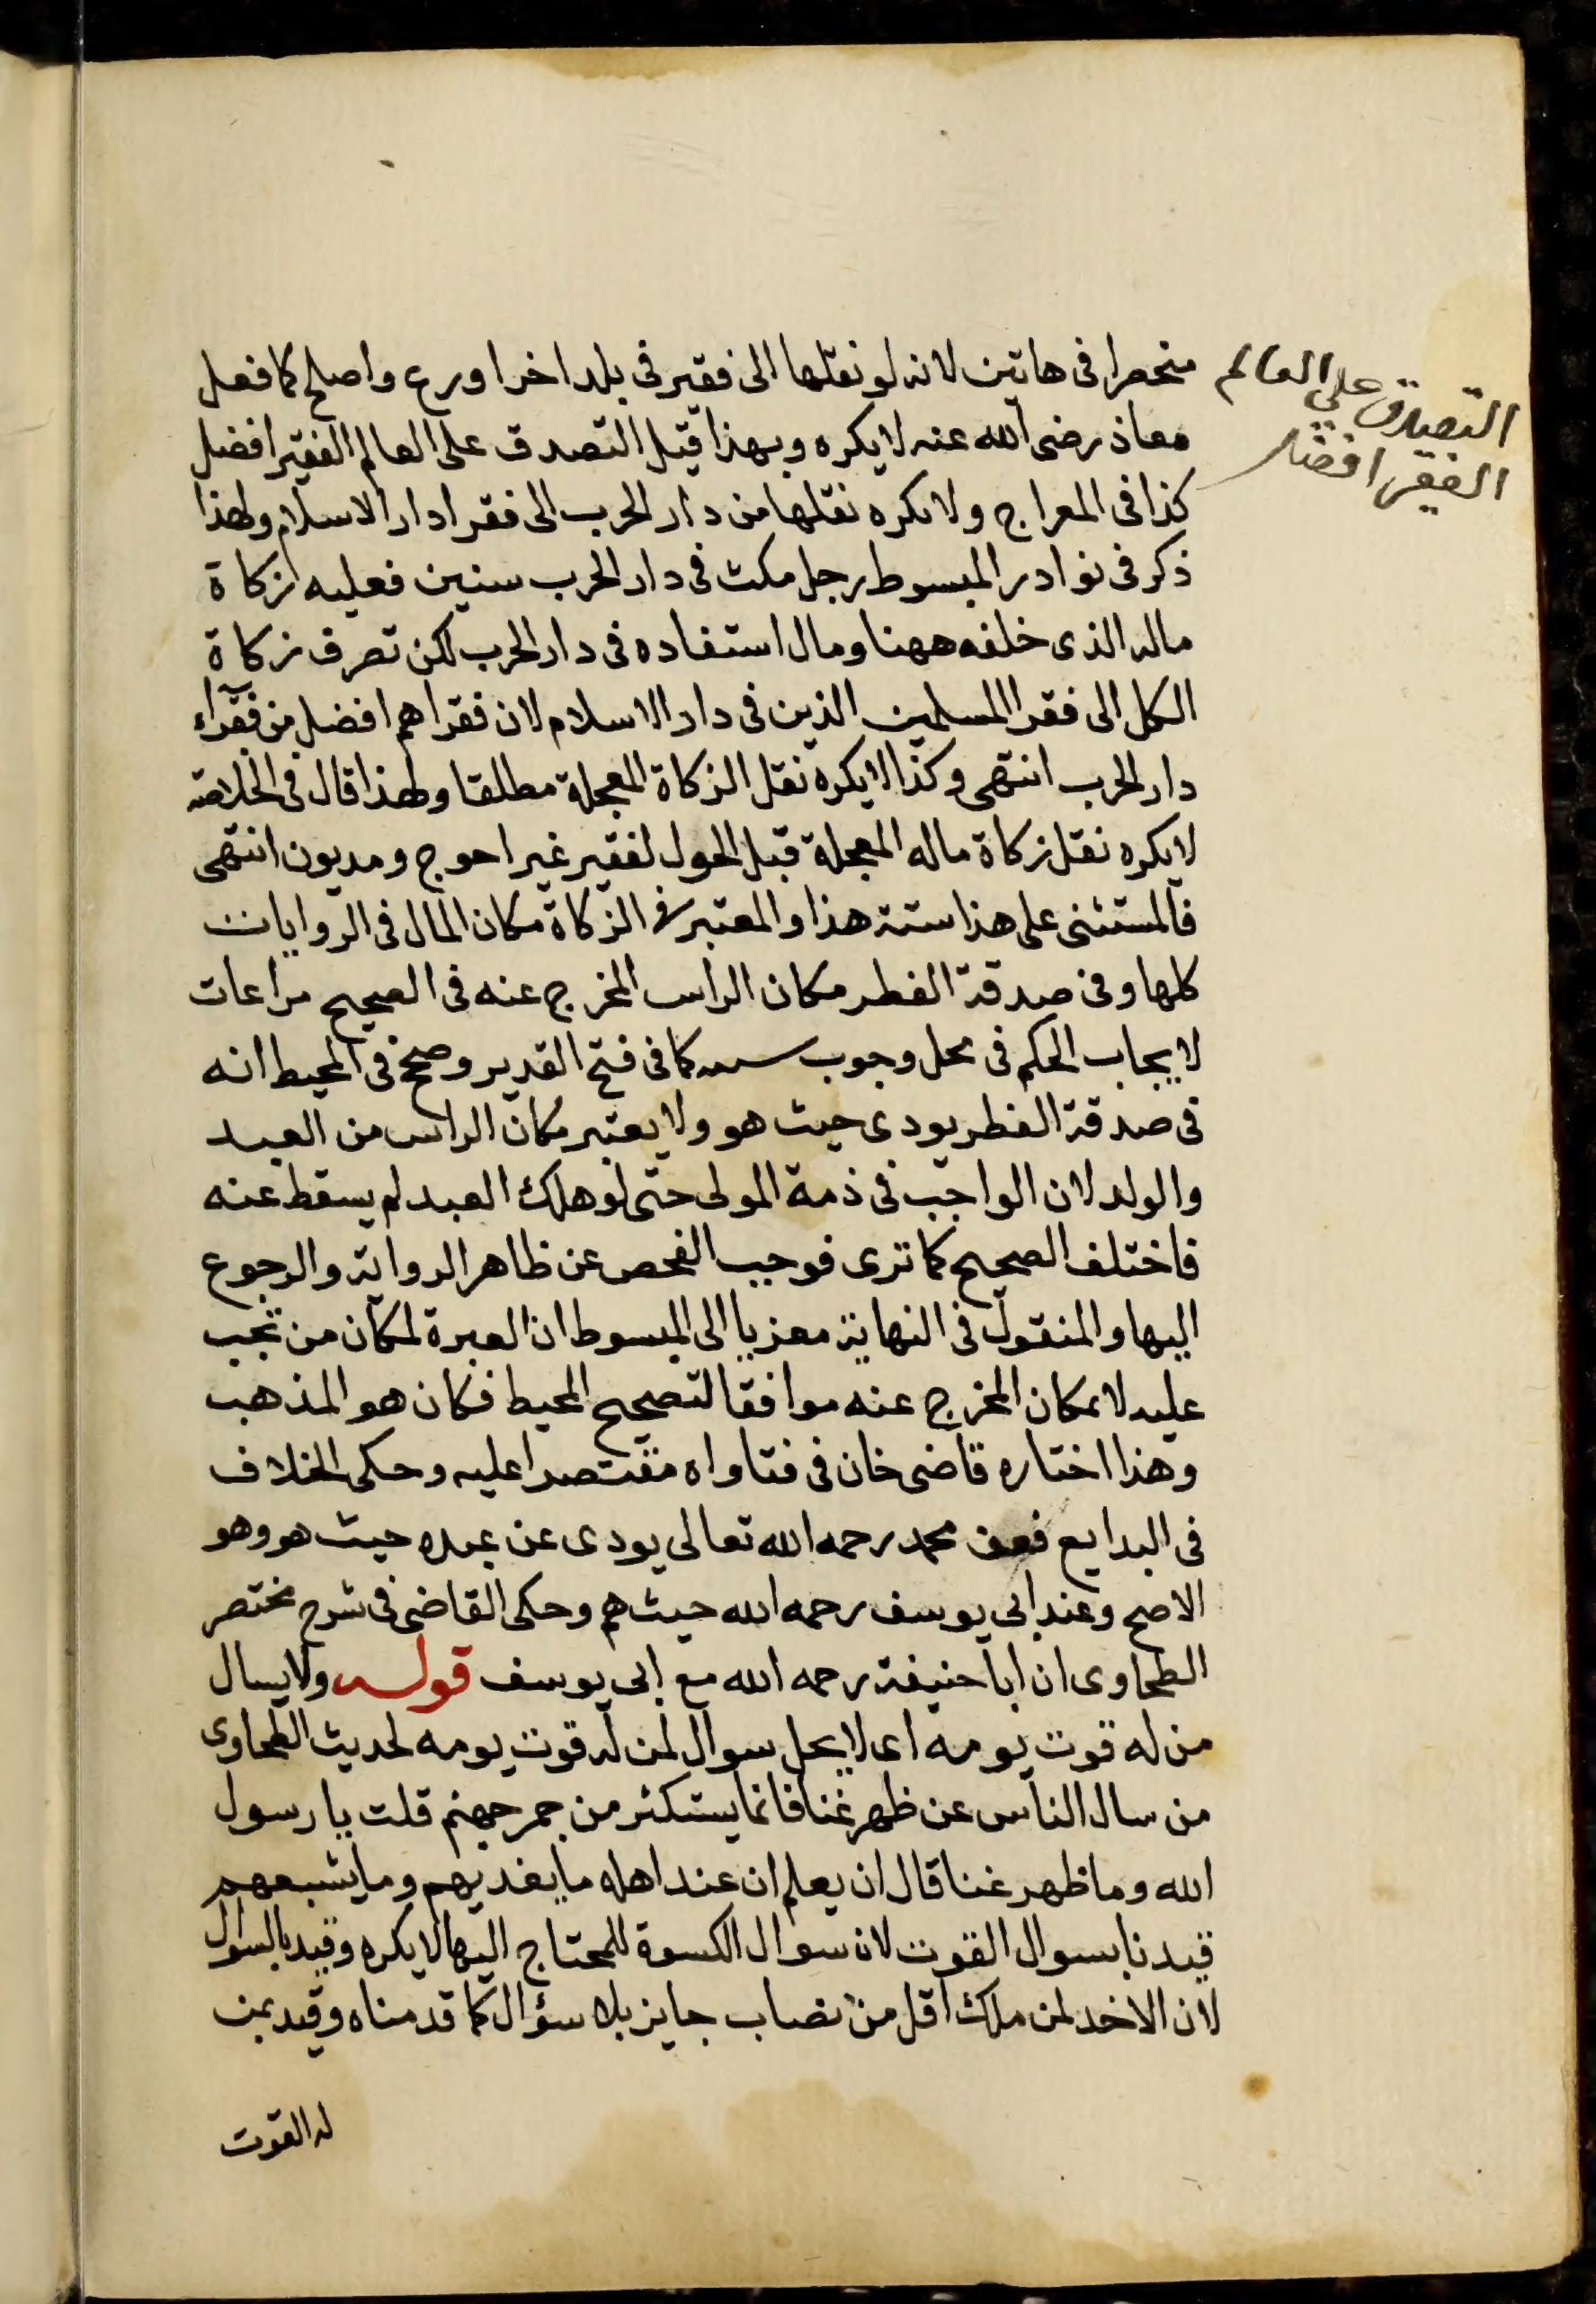 التصدق علي العالم
الفقير افضل
منحصرا في هاتين لانه لو نقلها الى فقير في بلد اخر اورع واصلح كما فعل
معاذ رضى الله عنه لا يكره وبهذا قيل التصدق على العالم الفقير افضل
كذا فى المعراج ولا يكره نقلها من دار الحرب الى فقرا دار الاسلام ولهذا
ذكر فى نوادر المبسوط رجل مكث فى دار الحرب سنين فعليه زكاة
ماله الذى خلفه ههنا ومال استفاده فى دار الحرب لكن تصرف زكاة
الكل الى فقرا المسلمين الذين فى دار الاسلام لان فقراهم افضل من فقراء
دار الحرب انتهى وكذا لا يكره نقل الزكاة المعجلة مطلقا ولهذا قال فى الخلاصة
لا يكره نقل زكاة ماله المعجلة قبل الحول لفقير غير احوج ومديون انتهى
فالمستثنى على هذا ستة هذا والمعتبر فى الزكاة مكان المال فى الروايات
كلها وفى صدقة الفطر مكان الراس المخرج عنه فى الصحيح مراعات
لايجاب الحكم فى محل وجوب سببه كما فى فتح القدير وصحح فى المحيط انه
فى صدقة الفطر يودى حيث هو ولا يعتبر مكان الراس من العبد
والولد لان الواجب فى ذمة المولى حتى لو هلك العبد لم يسقط عنه
فاختلف الصحيح كما ترى فوجب الفحص عن ظاهر الرواية والرجوع
اليها والمنقول فى النهاية معزيا الى المبسوط ان العبرة لمكان من تجب
عليه لا بمكان المخرج عنه موافقا لتصحيح المحيط فكان هو المذهب
وهذا اختاره قاضى خان فى فتاواه مقتصرا عليه وحكى الخلاف
فى البدايع فعن محمد رحمه الله تعالى يودى عن عبده حيث هو وهو
الاصح وعند ابى يوسف رحمه الله حيث هم وحكى القاضى فى شرح مختصر
الطحاوى ان ابا حنيفة رحمه الله مع ابى يوسف قوله ولا يسال
من له قوت يومه اى لا يحل سوال لمن له قوت يومه لحديث الطحاوى
من سال الناس عن ظهر غنا فانما يستكثر من جمر جهنم قلت يا رسول
الله وما ظهر غنا قال ان يعلم ان عند اهله ما يغديهم وما يشبعهم
قيدنا بسوال القوت لان سوال الكسوة للمحتاج اليها لا يكره وقيد بالسوال
لان الاخد لمن ملك اقل من نصاب جايز بلا سؤال كما قدمناه وقيد بمن
له القوت